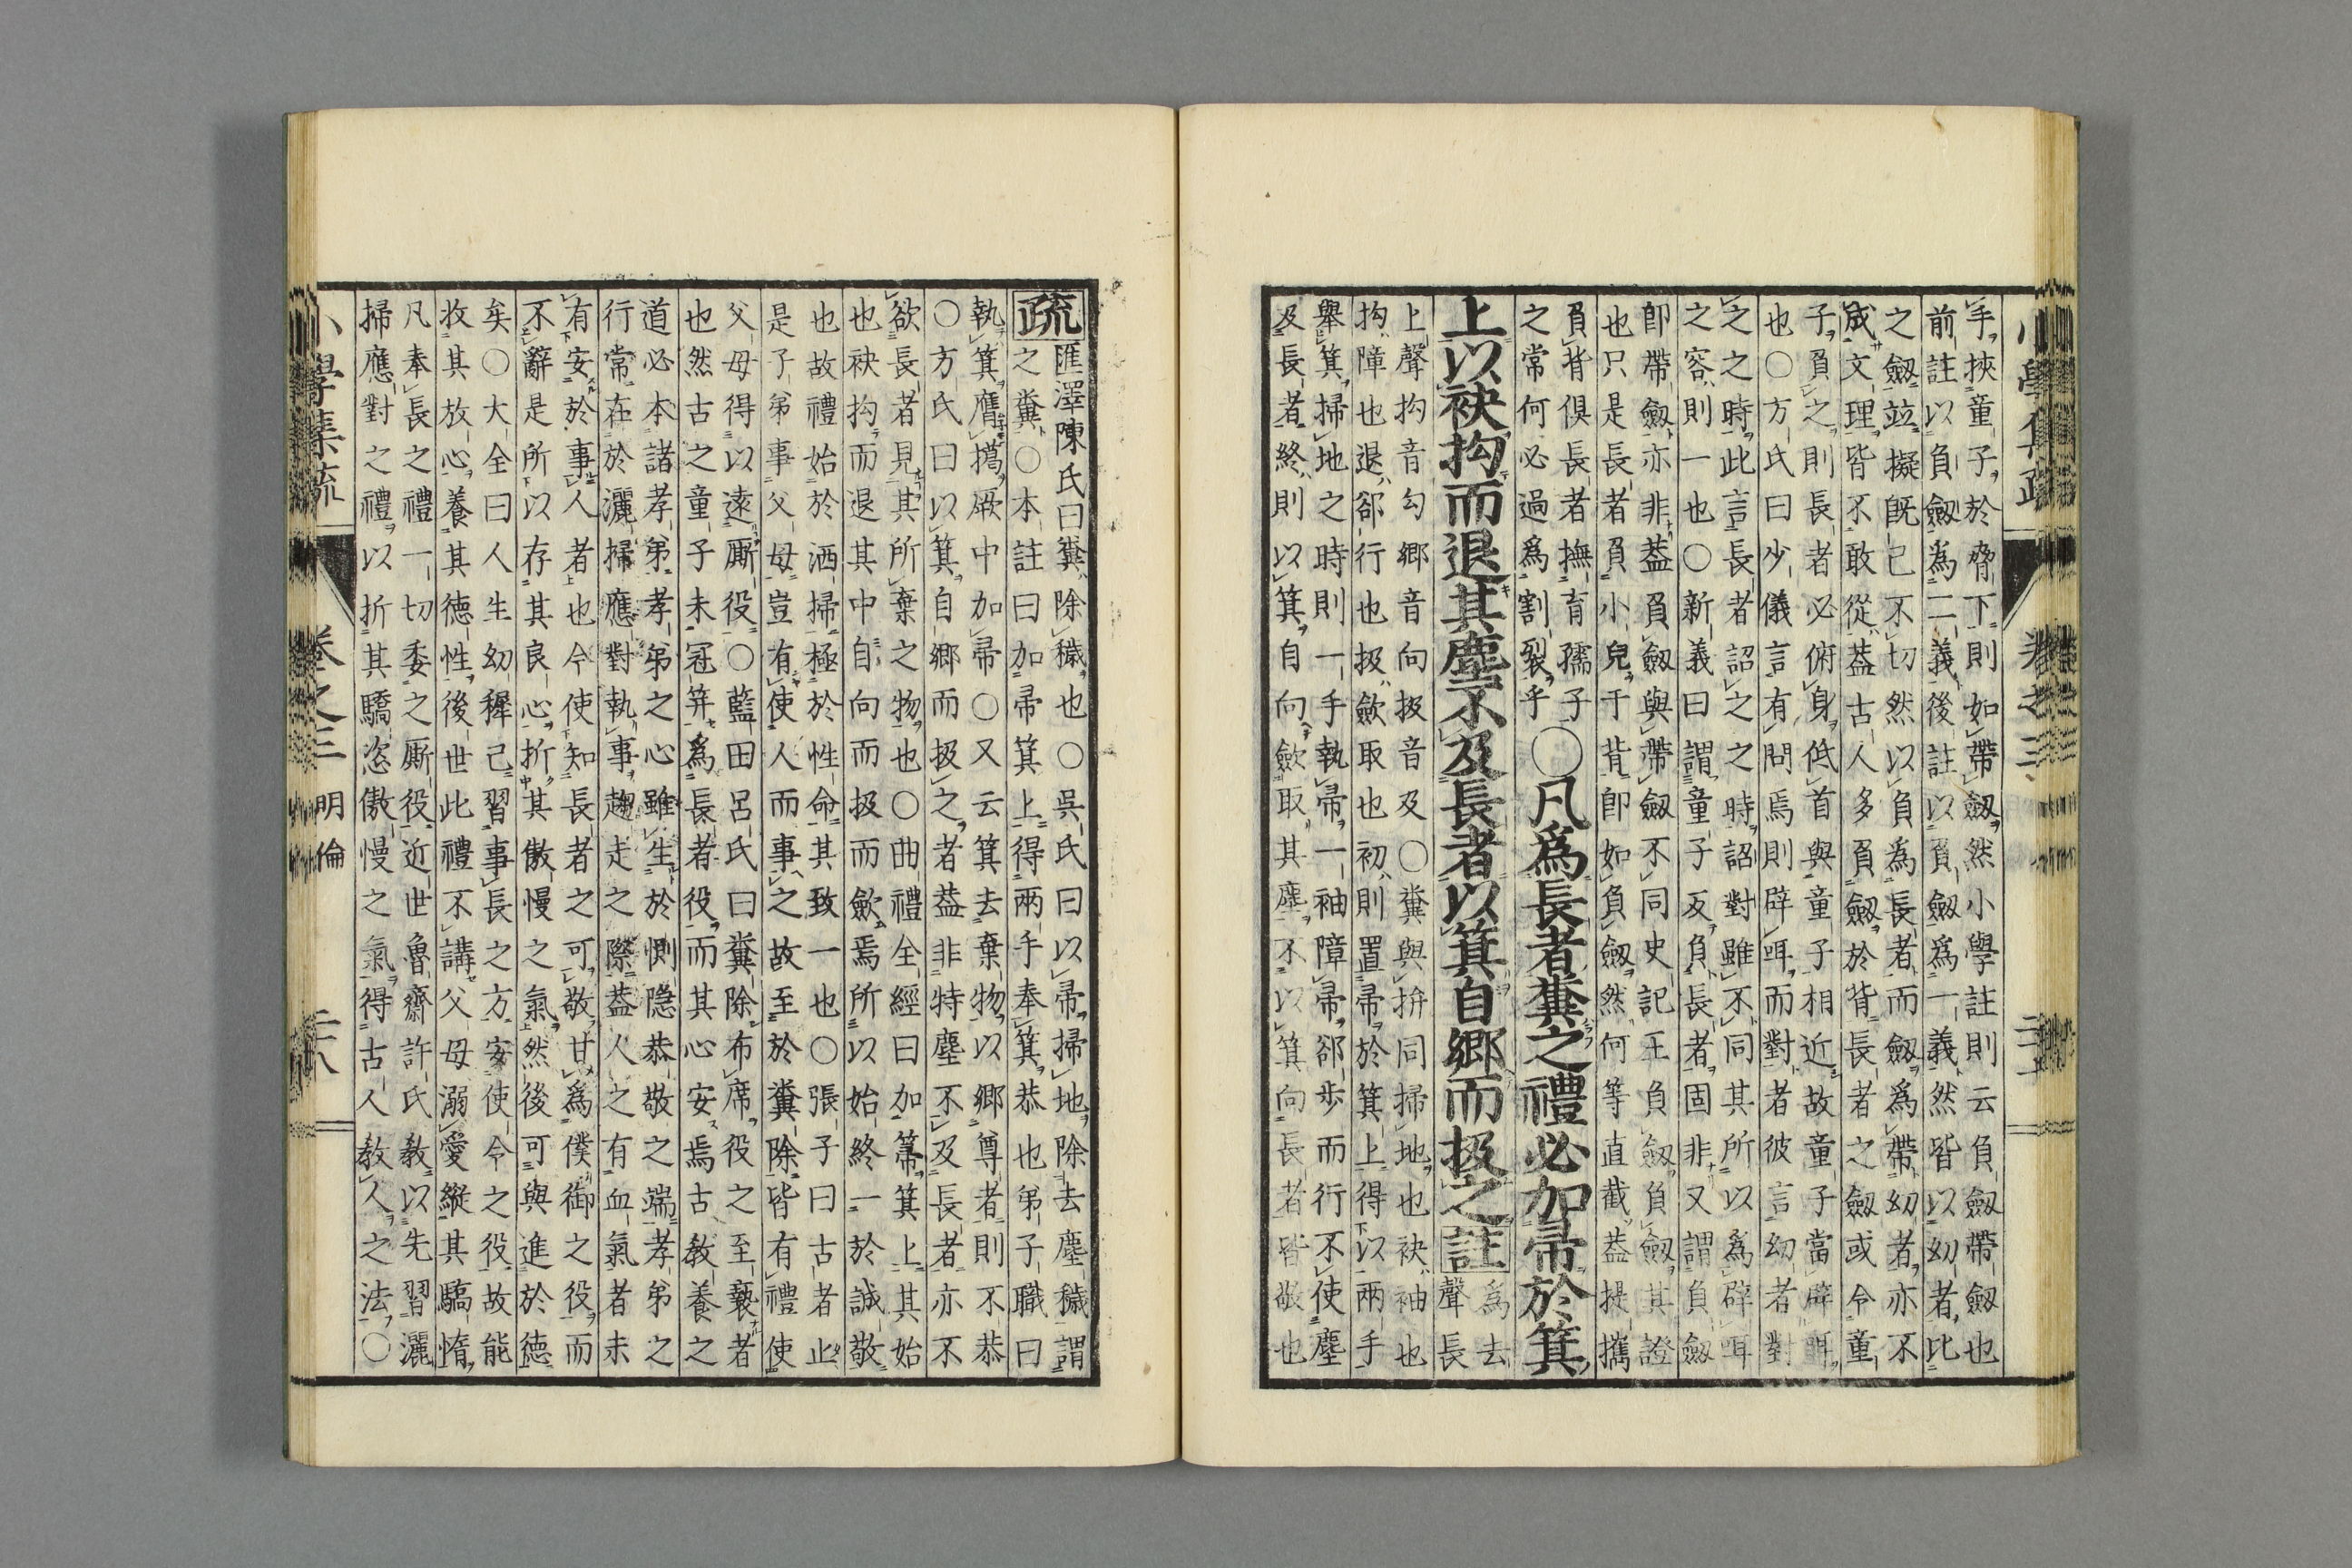 手挾童子於脅下則如帶劔然小學註則云負劔帶劔也
前註以負劔爲二義後註以負劔爲一義然皆以幼者比
之劔竝擬旣已不切然以負爲長者而劔爲帶幼者亦不
成文理皆不敢從葢古人多負劔於背長者之劔或令童
子負之則長者必俯身低首與童子相近故童子當辟咡
也○方氏曰少儀言有問焉則辟咡而對者彼言幼者對
之之時此言長者詔之之時詔對雖不同其所以爲辟咡
之容則一也○新義曰謂童子反負長者固非又謂負劔
卽帶劔亦非葢負劔與帶劔不同史記王負劔負劔其證
也只是長者負小兒于背卽如負劔然何等直截葢提攜
負背俱長者撫育孺子
之常何必過爲割裂乎
○凡爲長者糞之禮必加帚於箕
上以袂拘而退其塵不及長者以箕自郷而扱之註爲去
聲長
上聲拘音勾郷音向扱音及○糞與拚同掃地也袂袖也
拘障也退郤行也扱歛取也初則置帚於箕上得以兩手
舉箕掃地之時則一手執帚一袖障帚郤步而行不使塵
及長者終則以箕自向歛取其塵不以箕向長者皆敬也
小學集疏 卷之三
疏匯澤陳氏曰糞除穢也○吳氏曰以帚掃地除去塵穢謂
之糞○本註曰加帚箕上得兩手奉箕恭也弟子職曰
執箕膺擖厥中加帚○又云箕去棄物以郷尊者則不恭
○方氏曰以箕自郷而扱之者葢非特塵不及長者亦不
欲長者見其所棄之物也○曲禮全經曰加箒箕上其始
也袂拘而退其中自向而扱而歛焉所以始終一於誠敬
也故禮始於洒掃極於性命其致一也○張子曰古者止
是子弟事父母豈有使人而事之故至於糞除皆有禮使
父母得以遠厮役○藍田呂氏曰糞除布席役之至䙝者
也然古之童子未冠筓爲長者役而其心安焉古教養之
道必本諸孝弟孝弟之心雖生於惻隠恭敬之端孝弟之
行常在於灑掃應對執事趨走之際葢人之有血氣者未
有安於事人者也今使知長者之可敬甘爲僕御之役而
不辭是所以存其良心折其傲慢之氣然後可與進於德
矣○大全曰人生幼穉己習事長之方安使令之役故能
收其放心養其徳性後世此禮不講父母溺愛縱其驕惰
凡奉長之禮一切委之厮役近世魯齋許氏教以先習灑
掃應對之禮以折其驕恣傲慢之氣得古人教人之法○
小學集疏 卷之三 明倫 二八